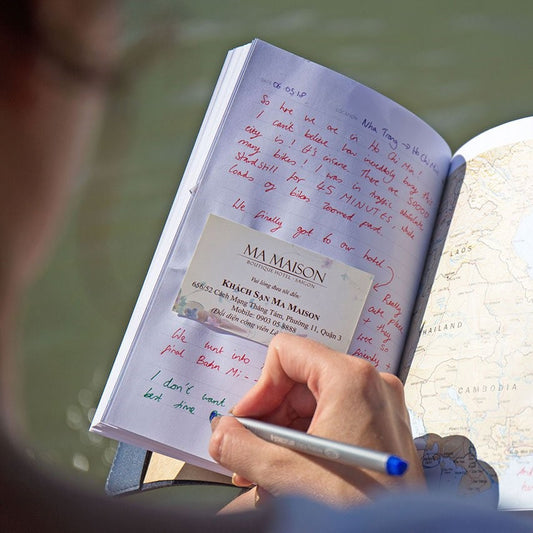 DATE 06.05.18
LOCATION Nha Trang → Ho Chi Minh
So here we are in Ho Chi Minh!
I can't believe how incredibly busy this
city is! It's insane. There are SOOOO
many bikes! I was in traffic absolute
standstill for 45 MINUTES, while
loads of bikes zoomed past.
We finally got to our hotel
MA MAISON
BOUTIQUE HOTEL · SAIGON
Vui lòng đưa tôi đến:
KHÁCH SẠN MA MAISON
656/52 Cách Mạng Tháng Tám, Phường 11, Quận 3
Mobile: 0903 05 8888
(Đối diện công viên Lê
Really
cute place
+ they
We went into
first Banh Mi -
I don't want
best time
LAOS
THAILAND
CAMBODIA